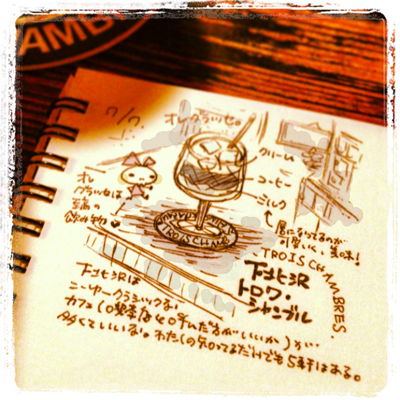 AMB
7/7.
オレ・グラッセ。
クリーム
コーヒー
ミルク
層になってるのが
可愛いし、美味!
オレ
グラッセは
至福の
飲み物
TROIS CHAM
TROIS CHAMBRES.
下北沢
トロワ・
シャンブル
下北沢は
ニュークラシックな
カフェ(喫茶店と呼んだ方がいいか)が
多くていいな。わたしの知ってるだけでも5軒はある。